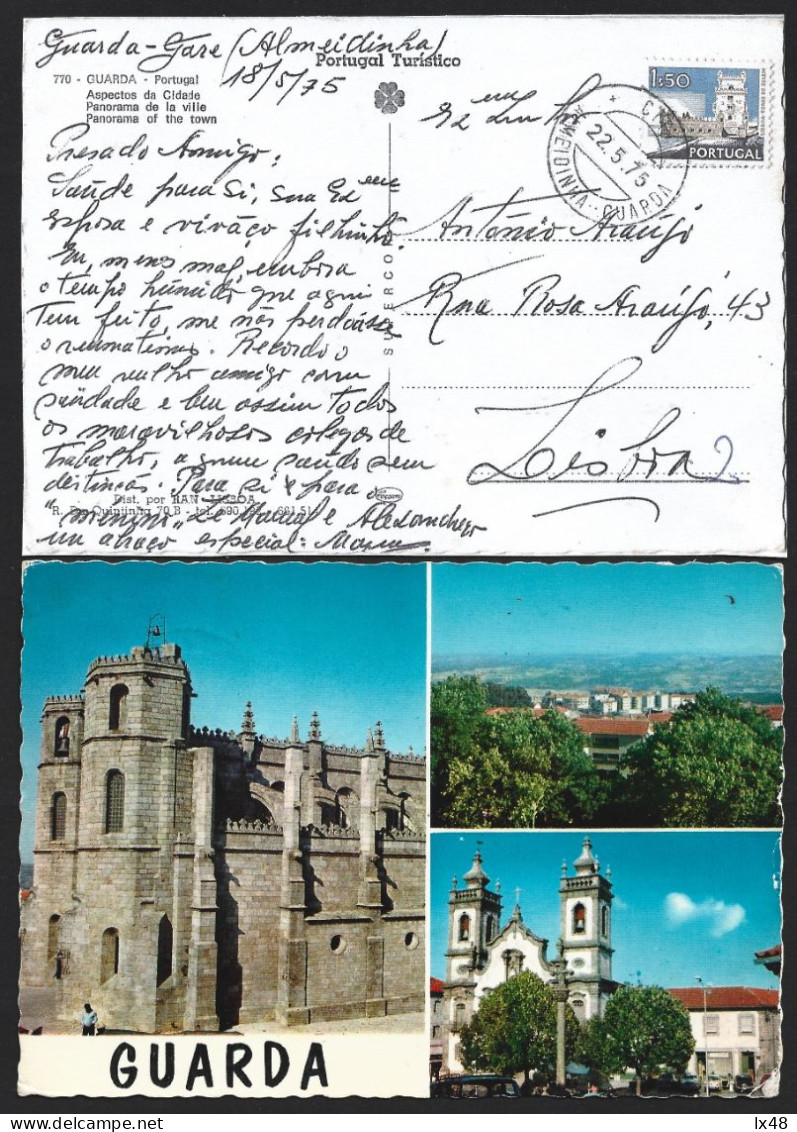 Guarda-Gare (Almeidinha)
18/5/75
Portugal Turístico
770 - GUARDA - Portugal
Aspectos da Cidade
Panorama de la ville
Panorama of the town
Presado Amigo:
Saúde para Si, sua Exᵐᵃ
esposa e vivaço filhinho.
Eu, menos mal, embora
o tempo húmido que aqui
tem feito, me não perdoasse
o reumatismo. Recordo o
meu velho amigo com
saüdade e bem assim todos
os maravilhosos colegas de
trabalho, a quem saúdo sem
distinção. Para si e para
Dist. por HAN - LISBOA
"menino" Zé Manuel e
um abraço especial:
SUPERCOR
1$50
PORTUGAL
22.5.75
ALMEIDINHA - GUARDA
António Araújo
Rua Rosa Araújo, 43
Lisboa 2
GUARDA
lx48